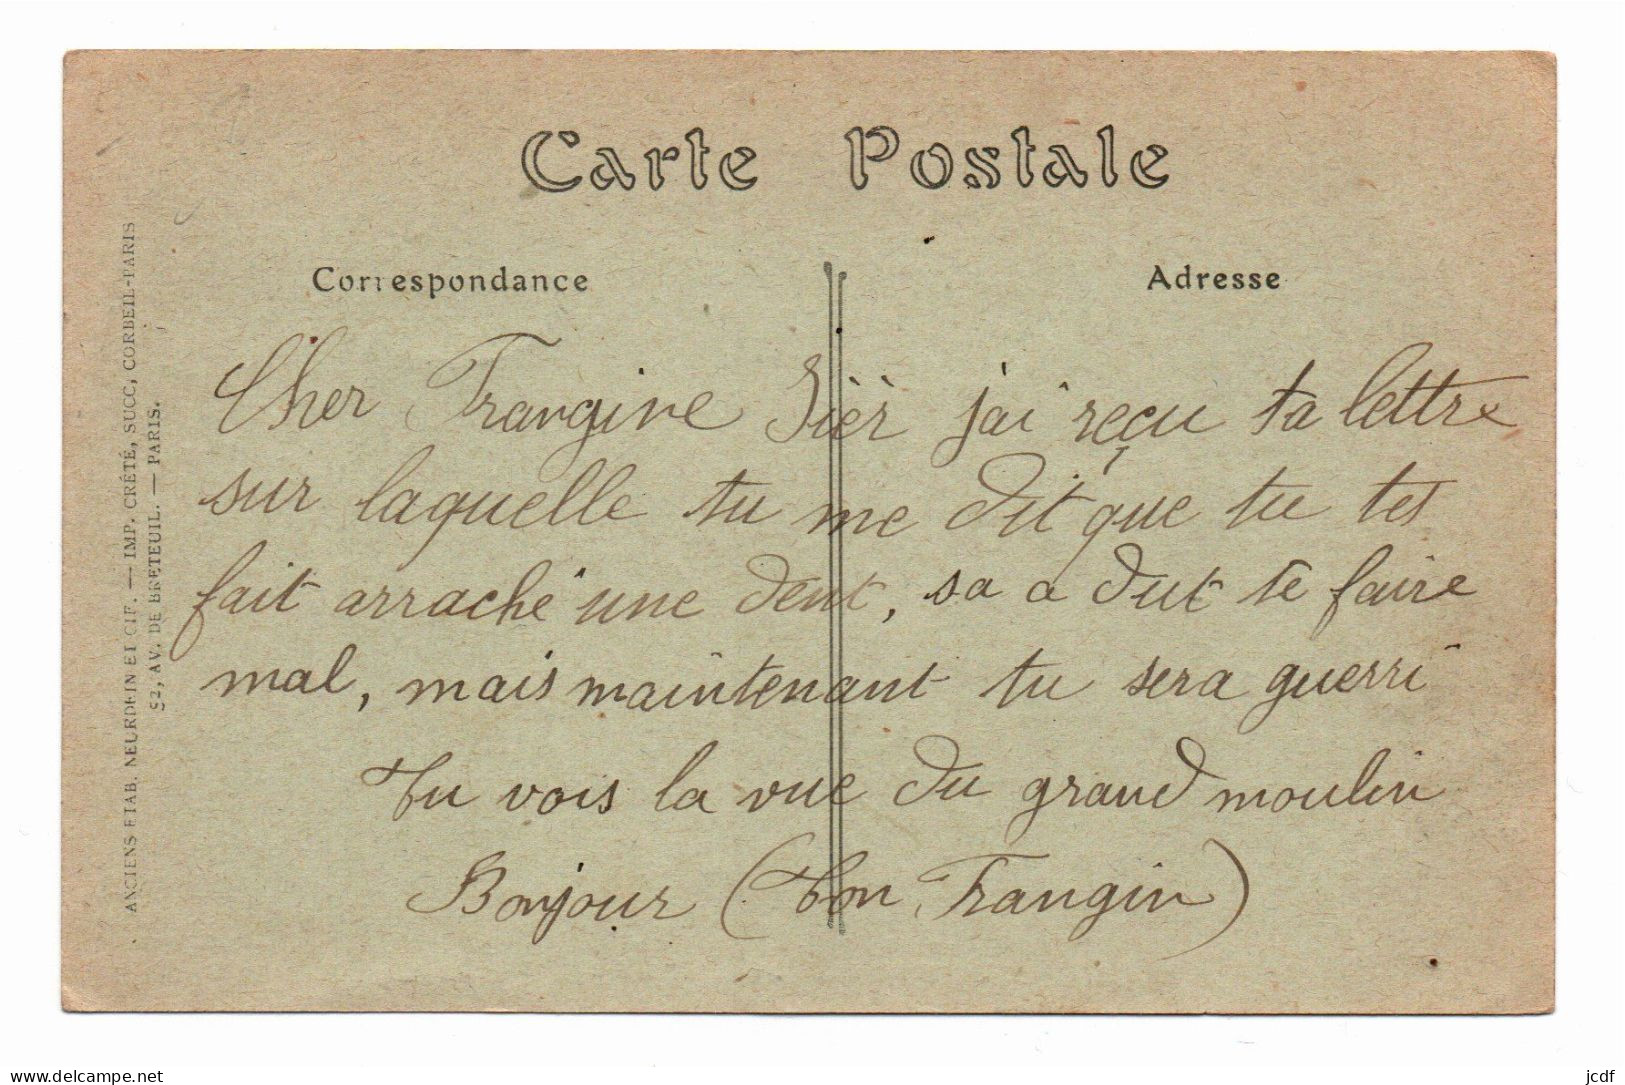 Carte Postale
Correspondance
Adresse
Cher Frangine Hièr j'ai reçu ta lettre
sur laquelle tu me dit que tu tes
fait arraché une dent, sa a dut te faire
mal, mais maintenant tu sera guerri
Tu vois la vue du grand moulin
Bonjour (Ton Frangin)
ANCIENS ETAB. NEURDEIN ET CIE. — IMP. CRÉTÉ, SUCC, CORBEIL-PARIS
52, AV. DE BRETEUIL. — PARIS.
www.delcampe.net
jcdf